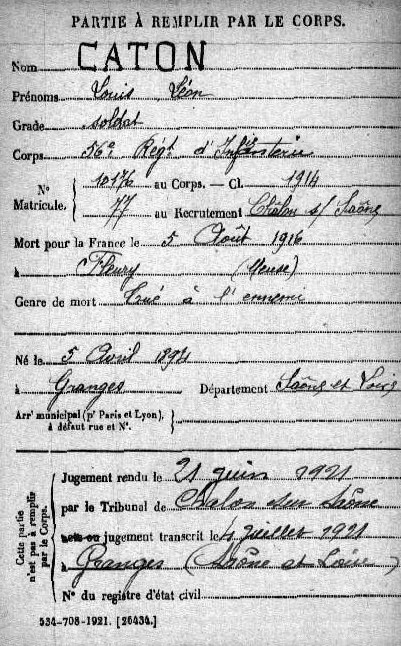 PARTIE À REMPLIR PAR LE CORPS.
Nom CATON
Prénoms Louis Léon
Grade soldat
Corps 56e Régt d'Infanterie
N° Matricule. { 10176 au Corps. — Cl. 1914
77 au Recrutement Châlon s/ Saône
Mort pour la France le 5 Août 1916
à Fleury (Meuse)
Genre de mort Tué à l'ennemi
Né le 5 Avril 1894
à Granges Département Saône et Loire
Arrt municipal (pr Paris et Lyon), à défaut rue et N°. }
Cette partie n'est pas à remplir par le Corps.
Jugement rendu le 21 juin 1921
par le Tribunal de Chalon sur Saône
acte ou jugement transcrit le 4 juillet 1921
à Granges (Saône et Loire)
N° du registre d'état civil
534-708-1921. [26434.]